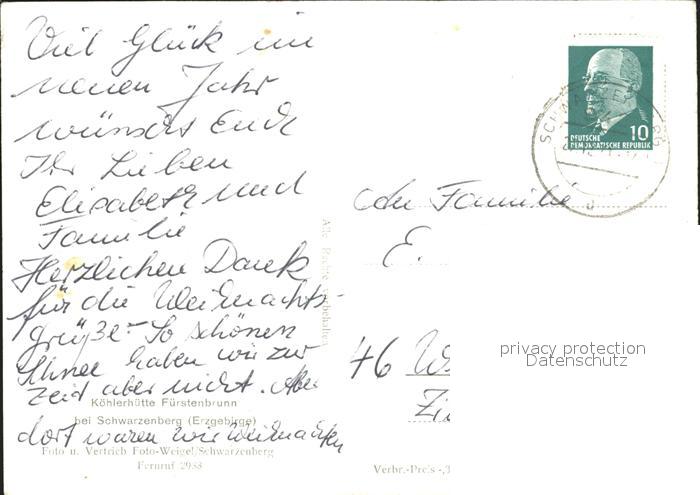 Viel Glück im
neuen Jahr
wünscht Euch
Ihr Lieben
Elisabeth und
Familie
Herzlichen Dank
für die Weihnachts-
grüße. So schönen
Schnee haben wir zur
Zeit aber nicht. Aber
Köhlerhütte Fürstenbrunn
bei Schwarzenberg (Erzgebirge)
dort waren wir Weihnachten
Foto u. Vertrieb Foto-Weigel/Schwarzenberg
Fernruf 2938
Alle Rechte vorbehalten
10
DEUTSCHE
DEMOKRATISCHE REPUBLIK
SCHWARZENBERG
An Familie
E.
46 W
Zi
privacy protection
Datenschutz
Verbr.-Preis -,